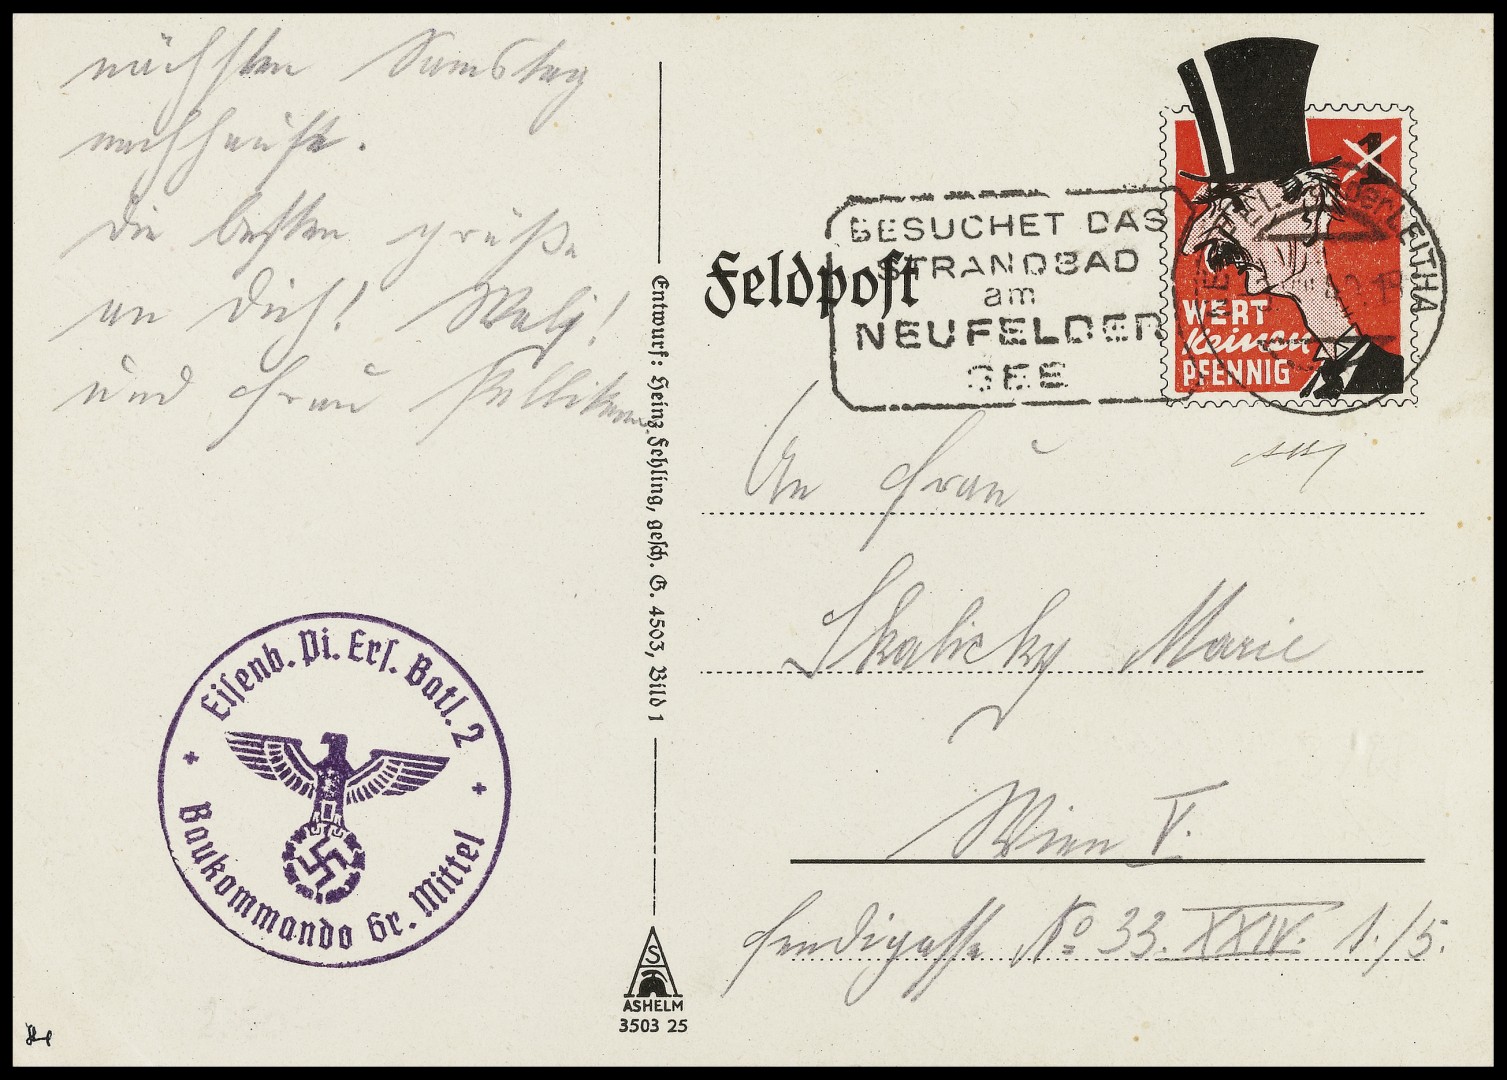 nächsten Samstag
nachhause.
Die besten Grüße
an Dich!
und Frau
Entwurf: Heinz Fehling, gesch. G. 4503, Bild 1
Eisenb. Pi. Ers. Batl. 2
Baukommando Gr. Mittel
AS
ASHELM
3503 25
Feldpost
BESUCHET DAS
STRANDBAD
am
NEUFELDER
SEE
1
WERT
keinen
PFENNIG
der LEITHA
An Frau
Skalicky Marie
Wien V.
Fendigasse No 33. XXIV. 1./5.